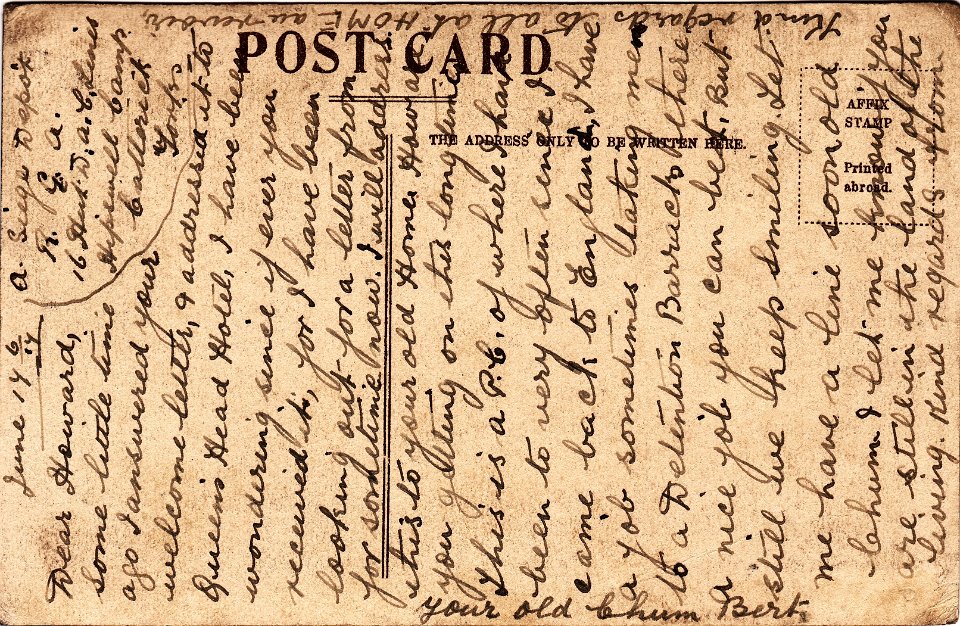 POST CARD
THE ADDRESS ONLY TO BE WRITTEN HERE.
AFFIX
STAMP
Printed
abroad.
A. Siege Depot
R. G. A.
16 Hut. D, A. C. Lines
Hipswell Camp
Catterick
Yorks
June 14 6/17
Dear Howard,
Some little time
ago I answered your
welcome letter, & addressed it to
Queens Head Hotel, I have been
wondering since if ever you
received it, for I have been
looking out for a letter from
for sometime now. I will address
this to your old Home. How are
you getting on this long time
This is a P.C. of where I have
been to very often since I
came back to England, I have
a job sometimes taking men
to a Detention Barracks there
a nice job you can bet, but
still we keep smiling. Let
me have a line soon old
Chum & let me know if you
are still in the land of the
living. Kind regards from
your old Chum Bert.
Kind regards to all at HOME au revoir